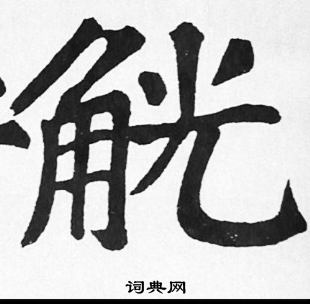 觥
词典网